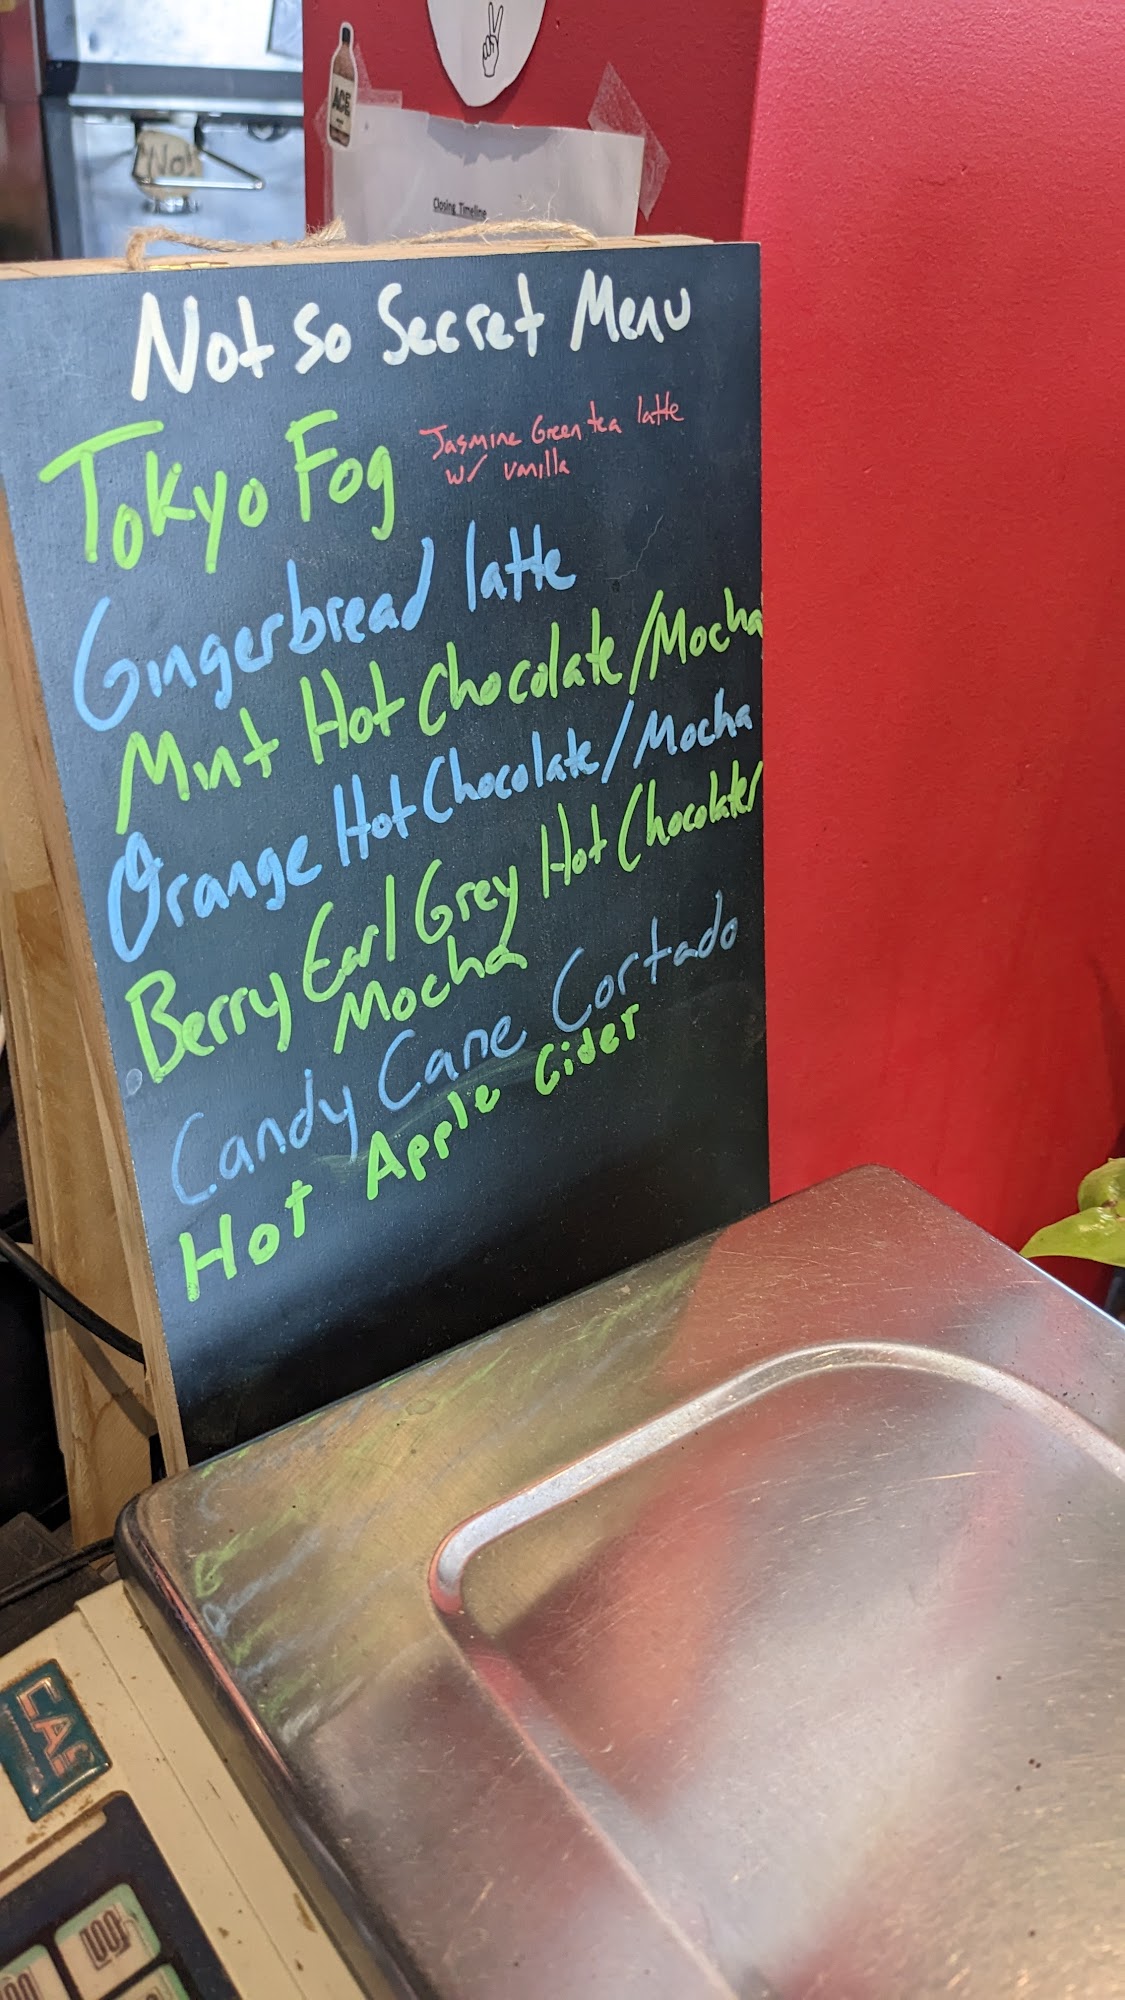 ACE
No!
Closing Timeline
Not so Secret Menu
Tokyo Fog
Jasmine Green tea latte
w/ vanilla
Gingerbread latte
Mint Hot Chocolate/Mocha
Orange Hot Chocolate/Mocha
Berry Earl Grey Hot Chocolate/
Mocha
Candy Cane Cortado
Hot Apple Cider
CAS